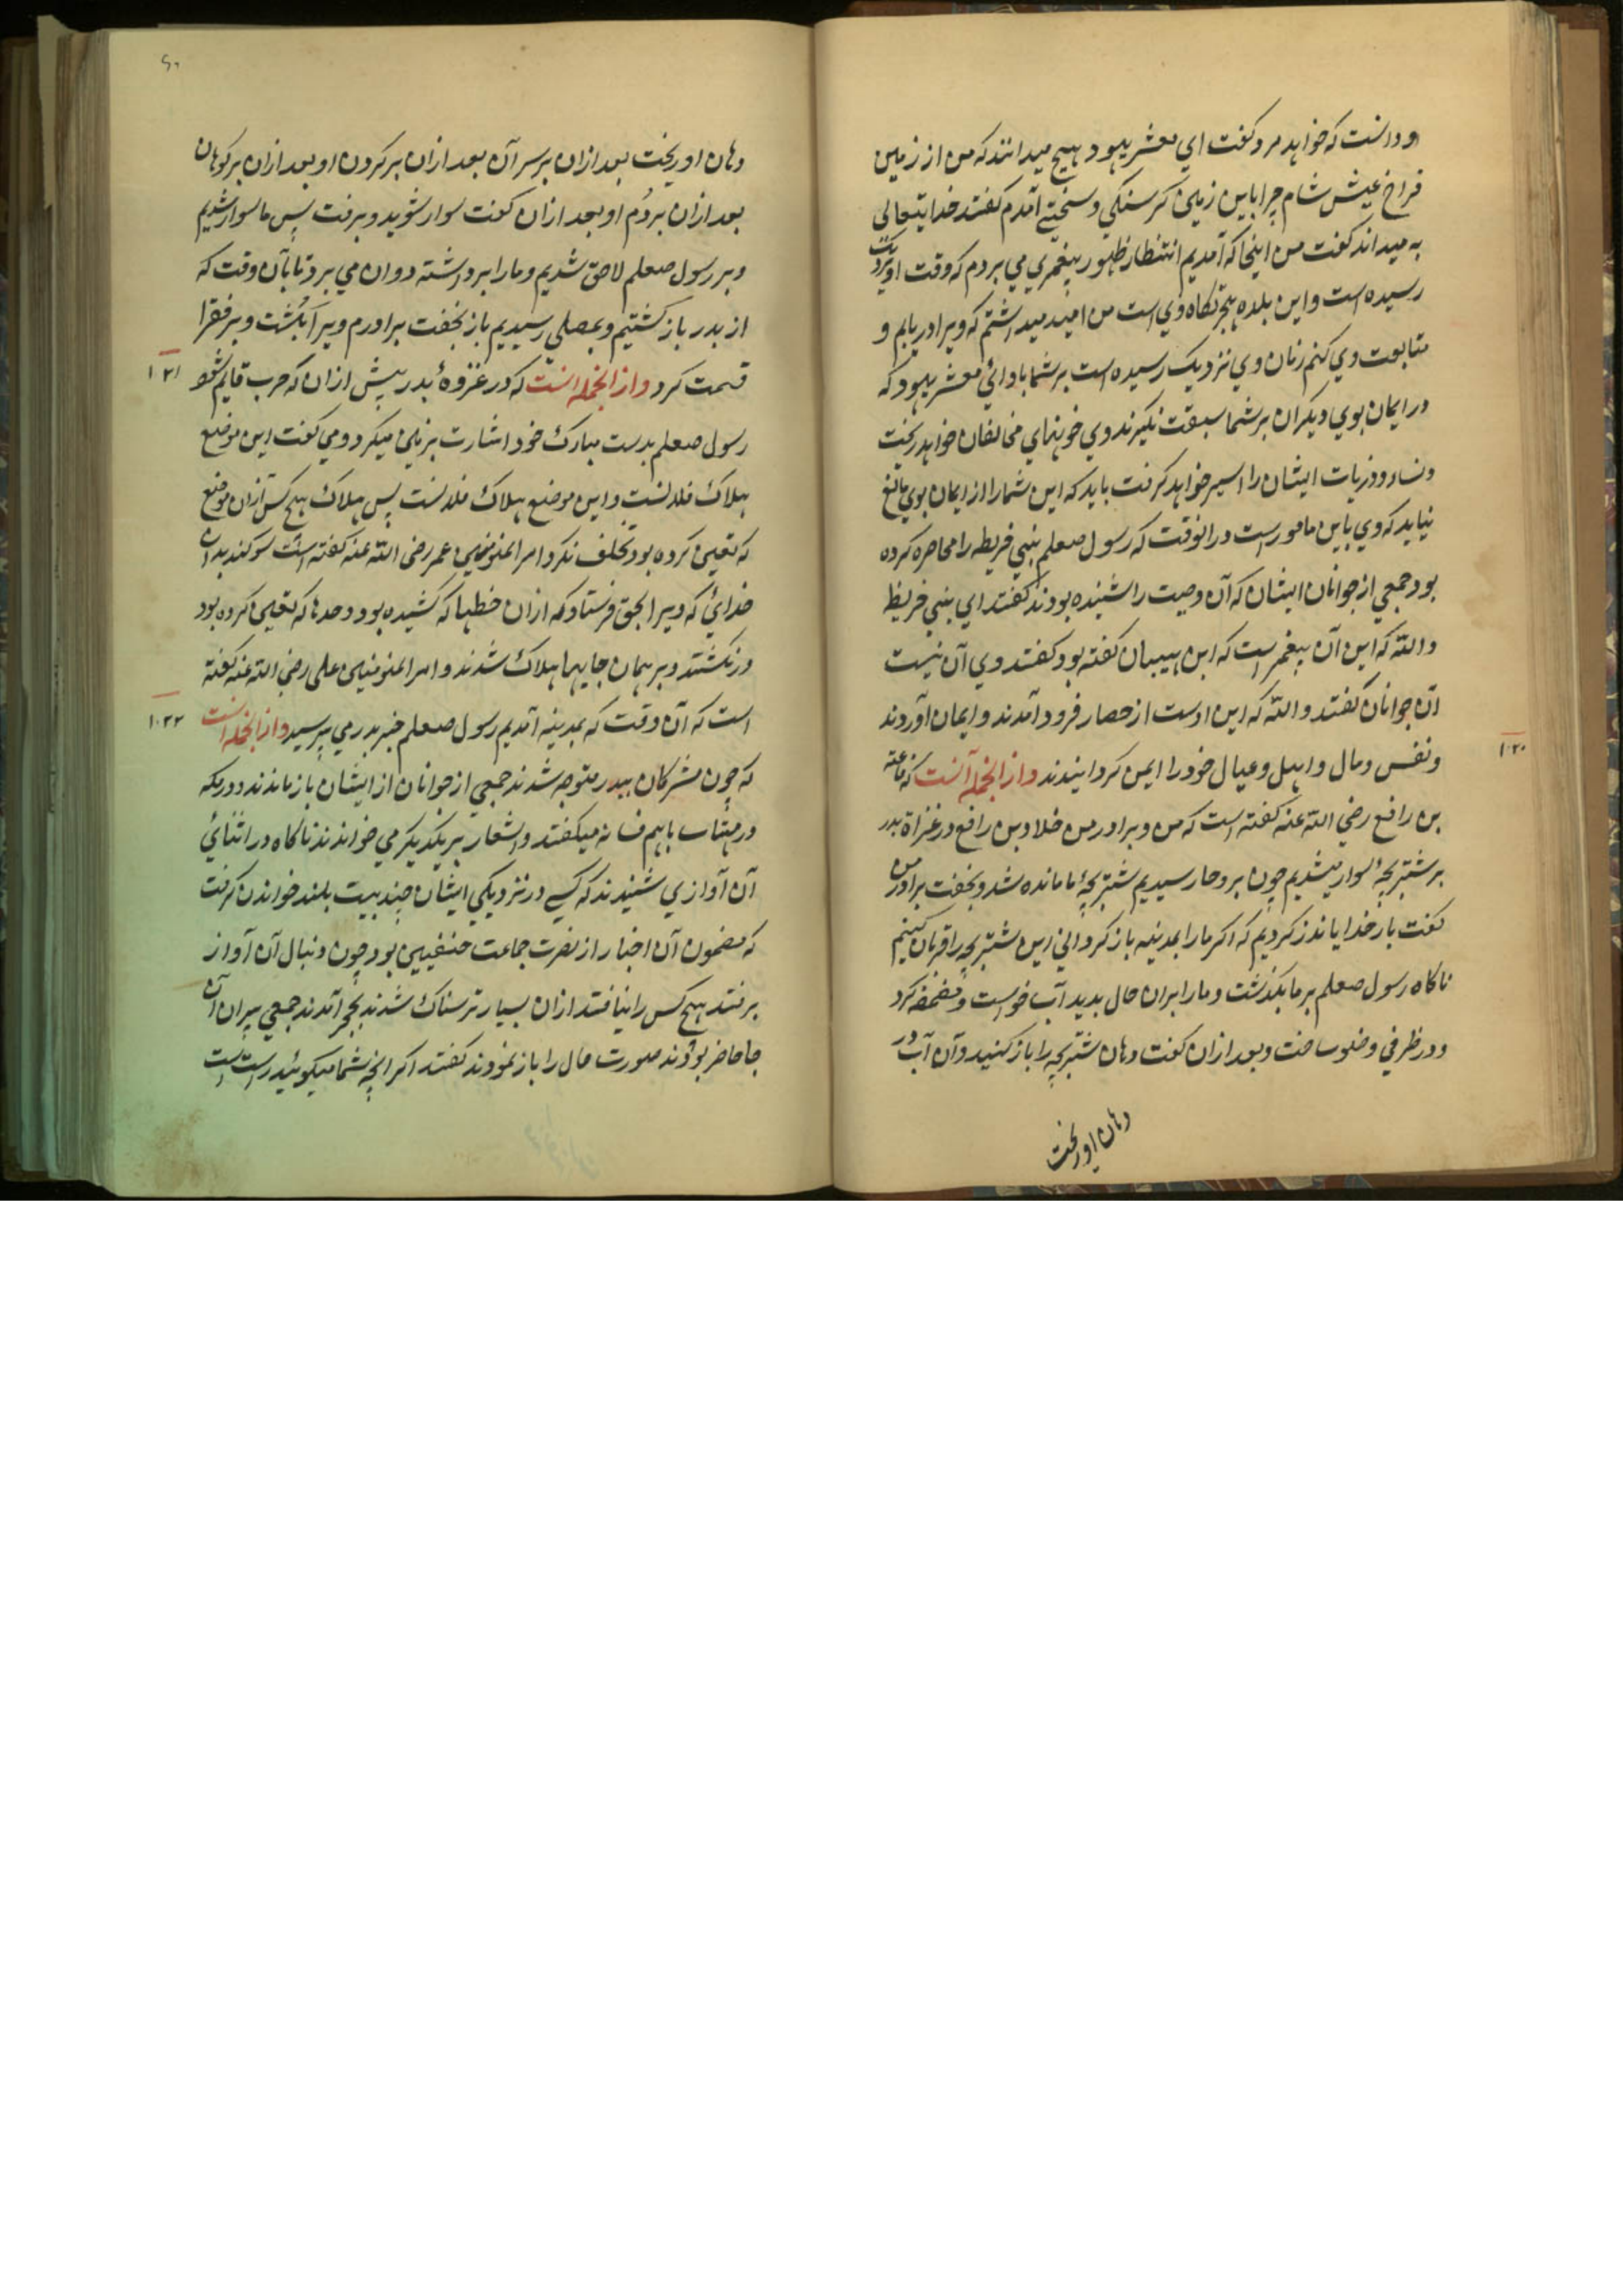 و دانست که خواهد مرد گفت ای معشر یهود هیچ میدانند که من از زمین
فراخ عیش شام چرا باین زمین گرسنگی و سختی آمدم گفتند خدایتعالی
به میداند گفت من اینجا که آمدیم انتظار ظهور پیغمبری می بردم که وقت او نزدیک
رسیده است و این بلده هجرتگاه وی است من امید میداشتم که ویرا دریابم و
متابعت وی کنم زنان وی نزدیک رسیده است بر شما بادای معشر یهود که
در ایمان بوی دیگران بر شما سبقت نگیرند وی خونهای مخالفان خواهد ریخت
و نساء و ذریات ایشان را اسیر خواهد گرفت باید که این شما را از ایمان بوی مانع
نیاید که وی باین مامورست در انوقت که رسول صعلم بنی قریظه را محاصره کرده
بود جمعی از جوانان ایشان که آن وصیت را شنیده بودند گفتند ای بنی قریظه
والله که این آن پیغمبر است که ابن هیبان گفته بود گفتند وی آن نیست
آن جوانان گفتند والله که این اوست از حصار فرود آمدند و ایمان آوردند
و نفس و مال و اهل و عیال خود را ایمن گردانیدند و از انجمله آنست که رفاعة
۱۰۲۰
بن رافع رضی الله عنه گفته است که من و برادر من خلاد بن رافع در غزاة بدر
بر شتر بچهٔ سوار میشدیم چون بروحا رسیدیم شتر بچهٔ ما مانده شد و بخفت برادر من
گفت بار خدایا نذر کردیم که اگر ما را بمدینه باز گردانی این شتر بچه را قربان کنیم
ناگاه رسول صعلم بر ما بگذشت و ما را بران حال بدید آب خواست و مضمضه کرد
و در ظرفی وضو ساخت و بعد ازان گفت دهان شتر بچه را باز کنید و آن آب در
دهان او ریخت
۶۰
دهان او ریخت بعد ازان بر سر آن بعد ازان بر گردن او بعد ازان بر کوهان
بعد ازان بر دُم او بعد ازان گفت سوار شوید و برفت پس ما سوار شدیم
و بر رسول صعلم لاحق شدیم و ما را برداشته دوان می برد تا بآن وقت که
از بدر باز گشتیم و بمصلی رسیدیم باز بخفت برادرم ویرا بکشت و بر فقرا
قسمت کرد و از انجمله انست که در غزوهٔ بدر پیش ازان که حرب قایم شود
۱۰۲۱
رسول صعلم بدست مبارک خود اشارت بزمین میکرد و می گفت این موضع
هلاک فلانست و این موضع هلاک فلانست پس هلاک هیچ کس ازان موضع
که تعیین کرده بود تخلف نکرد امیر المؤمنین عمر رضی الله عنه گفته است سوگند بدان
خدائی که ویرا بحق فرستاد که ازان خطها که کشیده بود و حدها که تعیین کرده بود
در نگشتند و بر همان جایها هلاک شدند و امیر المؤمنین علی رضی الله عنه گفته
است که آن وقت که بمدینه آمدیم رسول صعلم خبر بدر می پرسید و از انجمله انست
۱۰۲۲
که چون مشرکان ببدر متوجه شدند جمعی از جوانان از ایشان باز ماندند و در مکه
در مهتاب باهم فسانه میگفتند و اشعار بر یکدیگر می خواندند ناگاه در اثنای
آن آوازی شنیدند که کسی در نزدیکی ایشان چند بیت بلند خواندن گرفت
که مضمون آن اخبار از نصرت جماعت حنیفیین بود چون دنبال آن آواز
برفتند هیچ کس را نیافتند ازان بسیار ترسناک شدند بحجر آمدند جمعی پیران آن
جا حاضر بودند صورت حال را باز نمودند گفتند اگر انچه شما میگوئید راست است